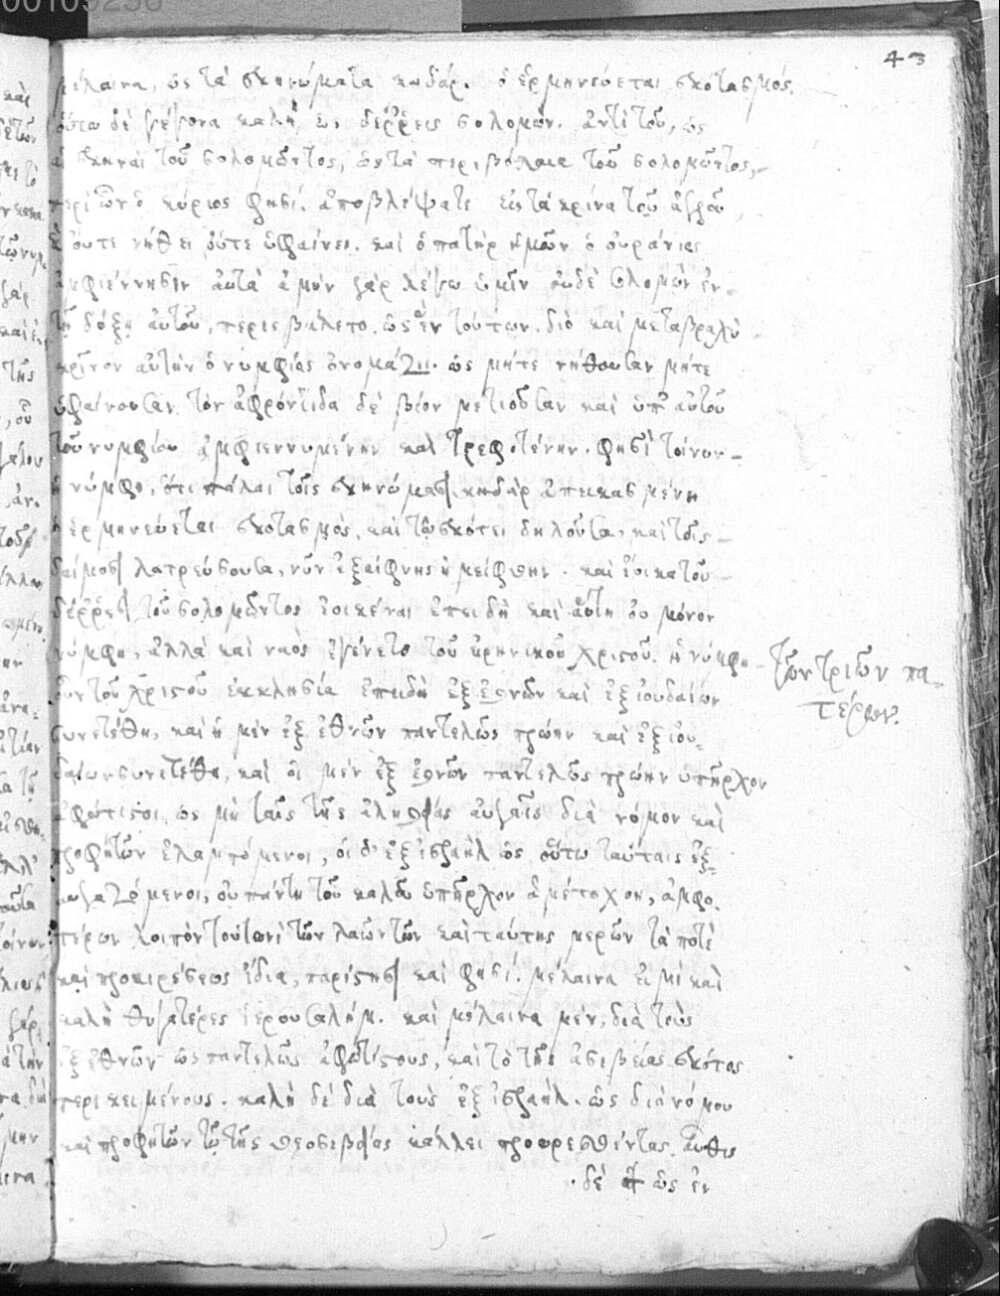 43
μέλαινα, ὡς τὰ σκηνώματα κηδάρ. ὃ ἑρμηνεύεται σκοτασμός.
οὕτω δὲ γέγονα καλὴ, ὡς δέρρεις σολομών. ἀντὶ τοῦ, ὡς
αἱ σκηναὶ τοῦ σολομῶντος, ὡς τὰ περιβόλαια τοῦ σολομῶντος,
περὶ ὧν ὁ κύριος φησί. ἀποβλέψατε εἰς τὰ κρίνα τοῦ ἀγροῦ,
οὔτε νήθει οὔτε ὑφαίνει. καὶ ὁ πατὴρ ἡμῶν ὁ οὐράνιος
ἀμφιέννησιν αὐτὰ ἀμὴν γὰρ λέγω ὑμῖν οὐδὲ σολομὼν ἐν
τῇ δόξῃ αὐτοῦ, περιεβάλετο. ὡς ἓν τούτων. διὸ καὶ μεταβραχὺ
κρῖνον αὐτὴν ὁ νυμφίος ὀνομάζει. ὡς μήτε νήθουσαν μήτε
ὑφαίνουσαν. τὸν ἀφρόντιδα δὲ βίον μετιοῦσαν καὶ ὑπ' αὐτοῦ
τοῦ νυμφίου ἀμφιεννυμένην καὶ τρεφομένην. φησὶ τοίνυν
ἡ νύμφη, ὅτι πάλαι τοῖς σκηνώμασι κηδὰρ ἀπεικασμένη
ὃ ἑρμηνεύεται σκοτασμὸς, καὶ τῷ σκότει δηλοῦσα, καὶ τοῖς
δαίμοσι λατρεύουσα, νῦν ἐξαίφνης ἠμείφθην. καὶ ἔοικα τοῦ
δέρρεσι τοῦ σολομῶντος ἐοικέναι ἐπειδὴ καὶ αὕτη οὐ μόνον
νύμφη, ἀλλὰ καὶ ναὸς ἐγένετο τοῦ εἰρηνικοῦ χριστοῦ. ἡ νύμφη
τῶν τριῶν πα-
τέρων.
οὖν τοῦ χριστοῦ ἐκκλησία ἐπειδὴ ἐξ ἐθνῶν καὶ ἐξ ἰουδαίων
συνετέθη, καὶ ἡ μὲν ἐξ ἐθνῶν παντελῶς πρώην καὶ ἐξ ἰου-
δαίων συνετέθη, καὶ οἱ μὲν ἐξ ἐθνῶν παντελῶς πρώην ὑπῆρχον
ἀφώτιστοι, ὡς μὴ ταῖς τῆς ἀληθείας αὐγαῖς διὰ νόμον καὶ
προφητῶν ἐλαμπόμενοι, οἱ δ' ἐξ ἰσραὴλ ὡς οὕτω ταύταις ἐξ-
αυγαζόμενοι, οὐ πάντη τοῦ καλοῦ ὑπῆρχον ἀμέτοχοι, ἀμφο-
τέρων λοιπὸν τουτωνὶ τῶν λαῶν τῶν καὶ ταύτης μερῶν τὰ ποτὲ
καὶ προαιρέσεως ἴδια, παρίστησι καὶ φησί. μέλαινα εἰμὶ καὶ
καλὴ θυγατέρες ἱερουσαλήμ. καὶ μέλαινα μὲν, διὰ τοὺς
ἐξ ἐθνῶν ὡς παντελῶς ἀφωτίστους, καὶ τὸ τῆς ἀσεβείας σκότος
περικειμένους. καλὴ δὲ διὰ τοὺς ἐξ ἰσραήλ. ὡς διὰ νόμου
καὶ προφητῶν τῷ τῆς θεοσεβείας κάλλει προαρεσθέντας. αὖθις
δὲ ὡς ἐν